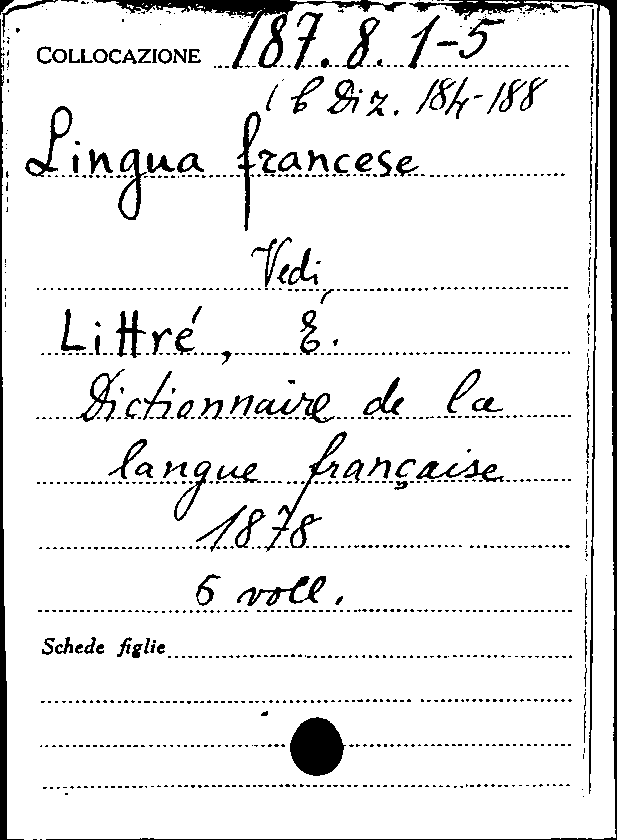 COLLOCAZIONE 187.8.1-5
16 Diz. 184-188
Lingua francese
Vedi
Littré, É.
Dictionnaire de la
langue française
1878
5 voll.
Schede figlie